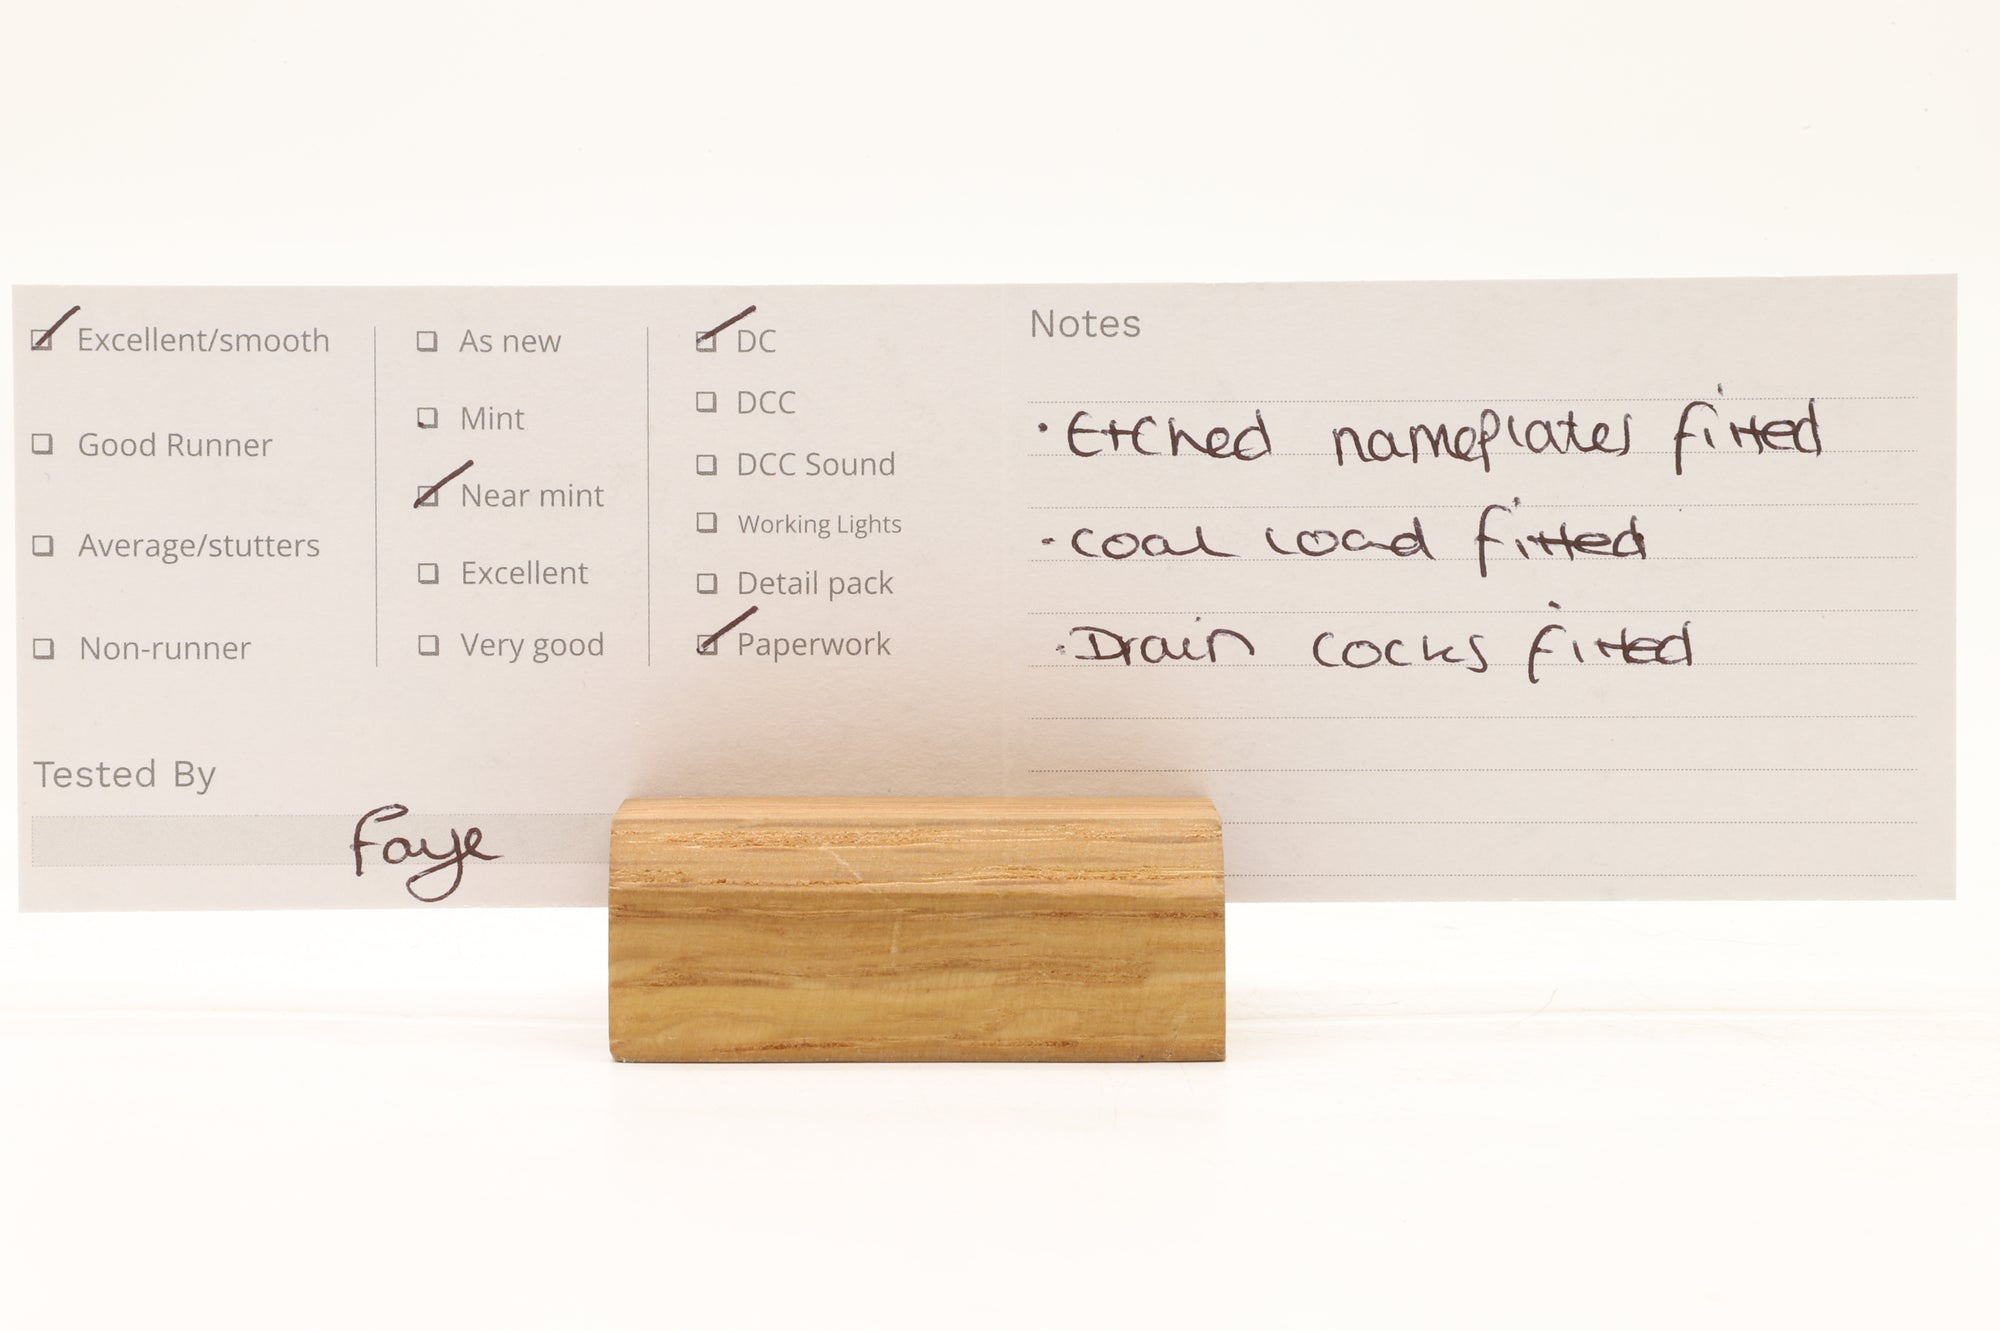 Excellent/smooth
Good Runner
Average/stutters
Non-runner
As new
Mint
Near mint
Excellent
Very good
DC
DCC
DCC Sound
Working Lights
Detail pack
Paperwork
Tested By
Faye
Notes
· Etched nameplates fitted
· coal load fitted
· Drain cocks fitted